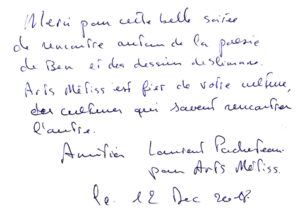 Merci pour cette belle soirée
de rencontre autour de la poésie
de Ben et des dessins de slimane.
Arts Métiss est fier de votre culture,
des cultures qui savent rencontrer
l'autre.
Amitiés Laurent
pour Arts Métiss.
Le 12 Dec